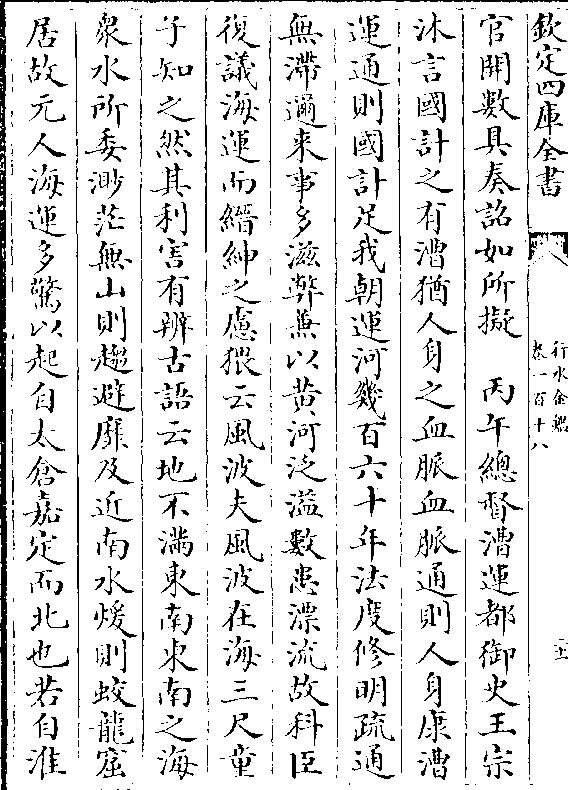 欽定四庫全書
行水金鑑
卷一百十八
官開數具奏詔如所擬　丙午總督漕運都御史王宗
沐言國計之有漕猶人身之血脈血脈通則人身康漕
運通則國計足我朝運河幾百六十年法度修明疏通
無滯邇來事多滋弊兼以黄河泛溢數患漂流故科臣
復議海運而縉紳之慮猥云風波夫風波在海三尺童
子知之然其利害有辨古語云地不滿東南東南之海
衆水所委渺茫無山則趨避靡及近南水煖則蛟龍窟
居故元人海運多驚以起自太倉嘉定而北也若自淮